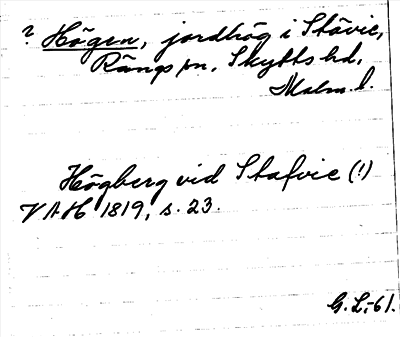 ? Högen, jordhög i Stävie,
Rängs sn, Skytts hd,
Malm. l.
Högberg vid Stafvie (!)
VAH 1819, s. 23.
G. L. -61.